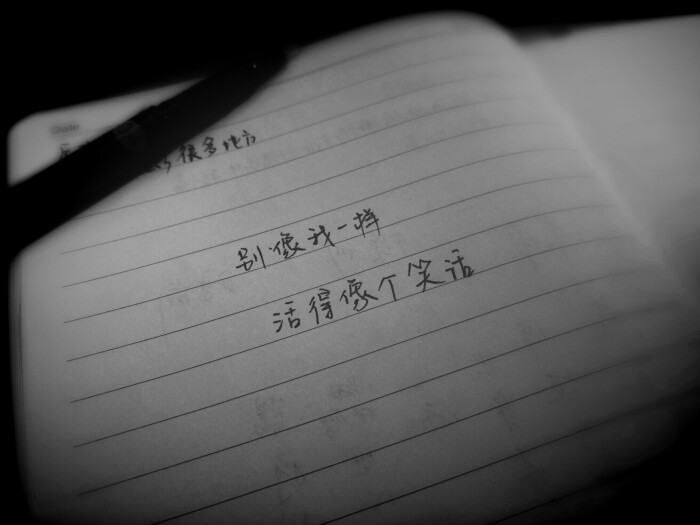 Date
很多地方
别像我一样
活得像个笑话